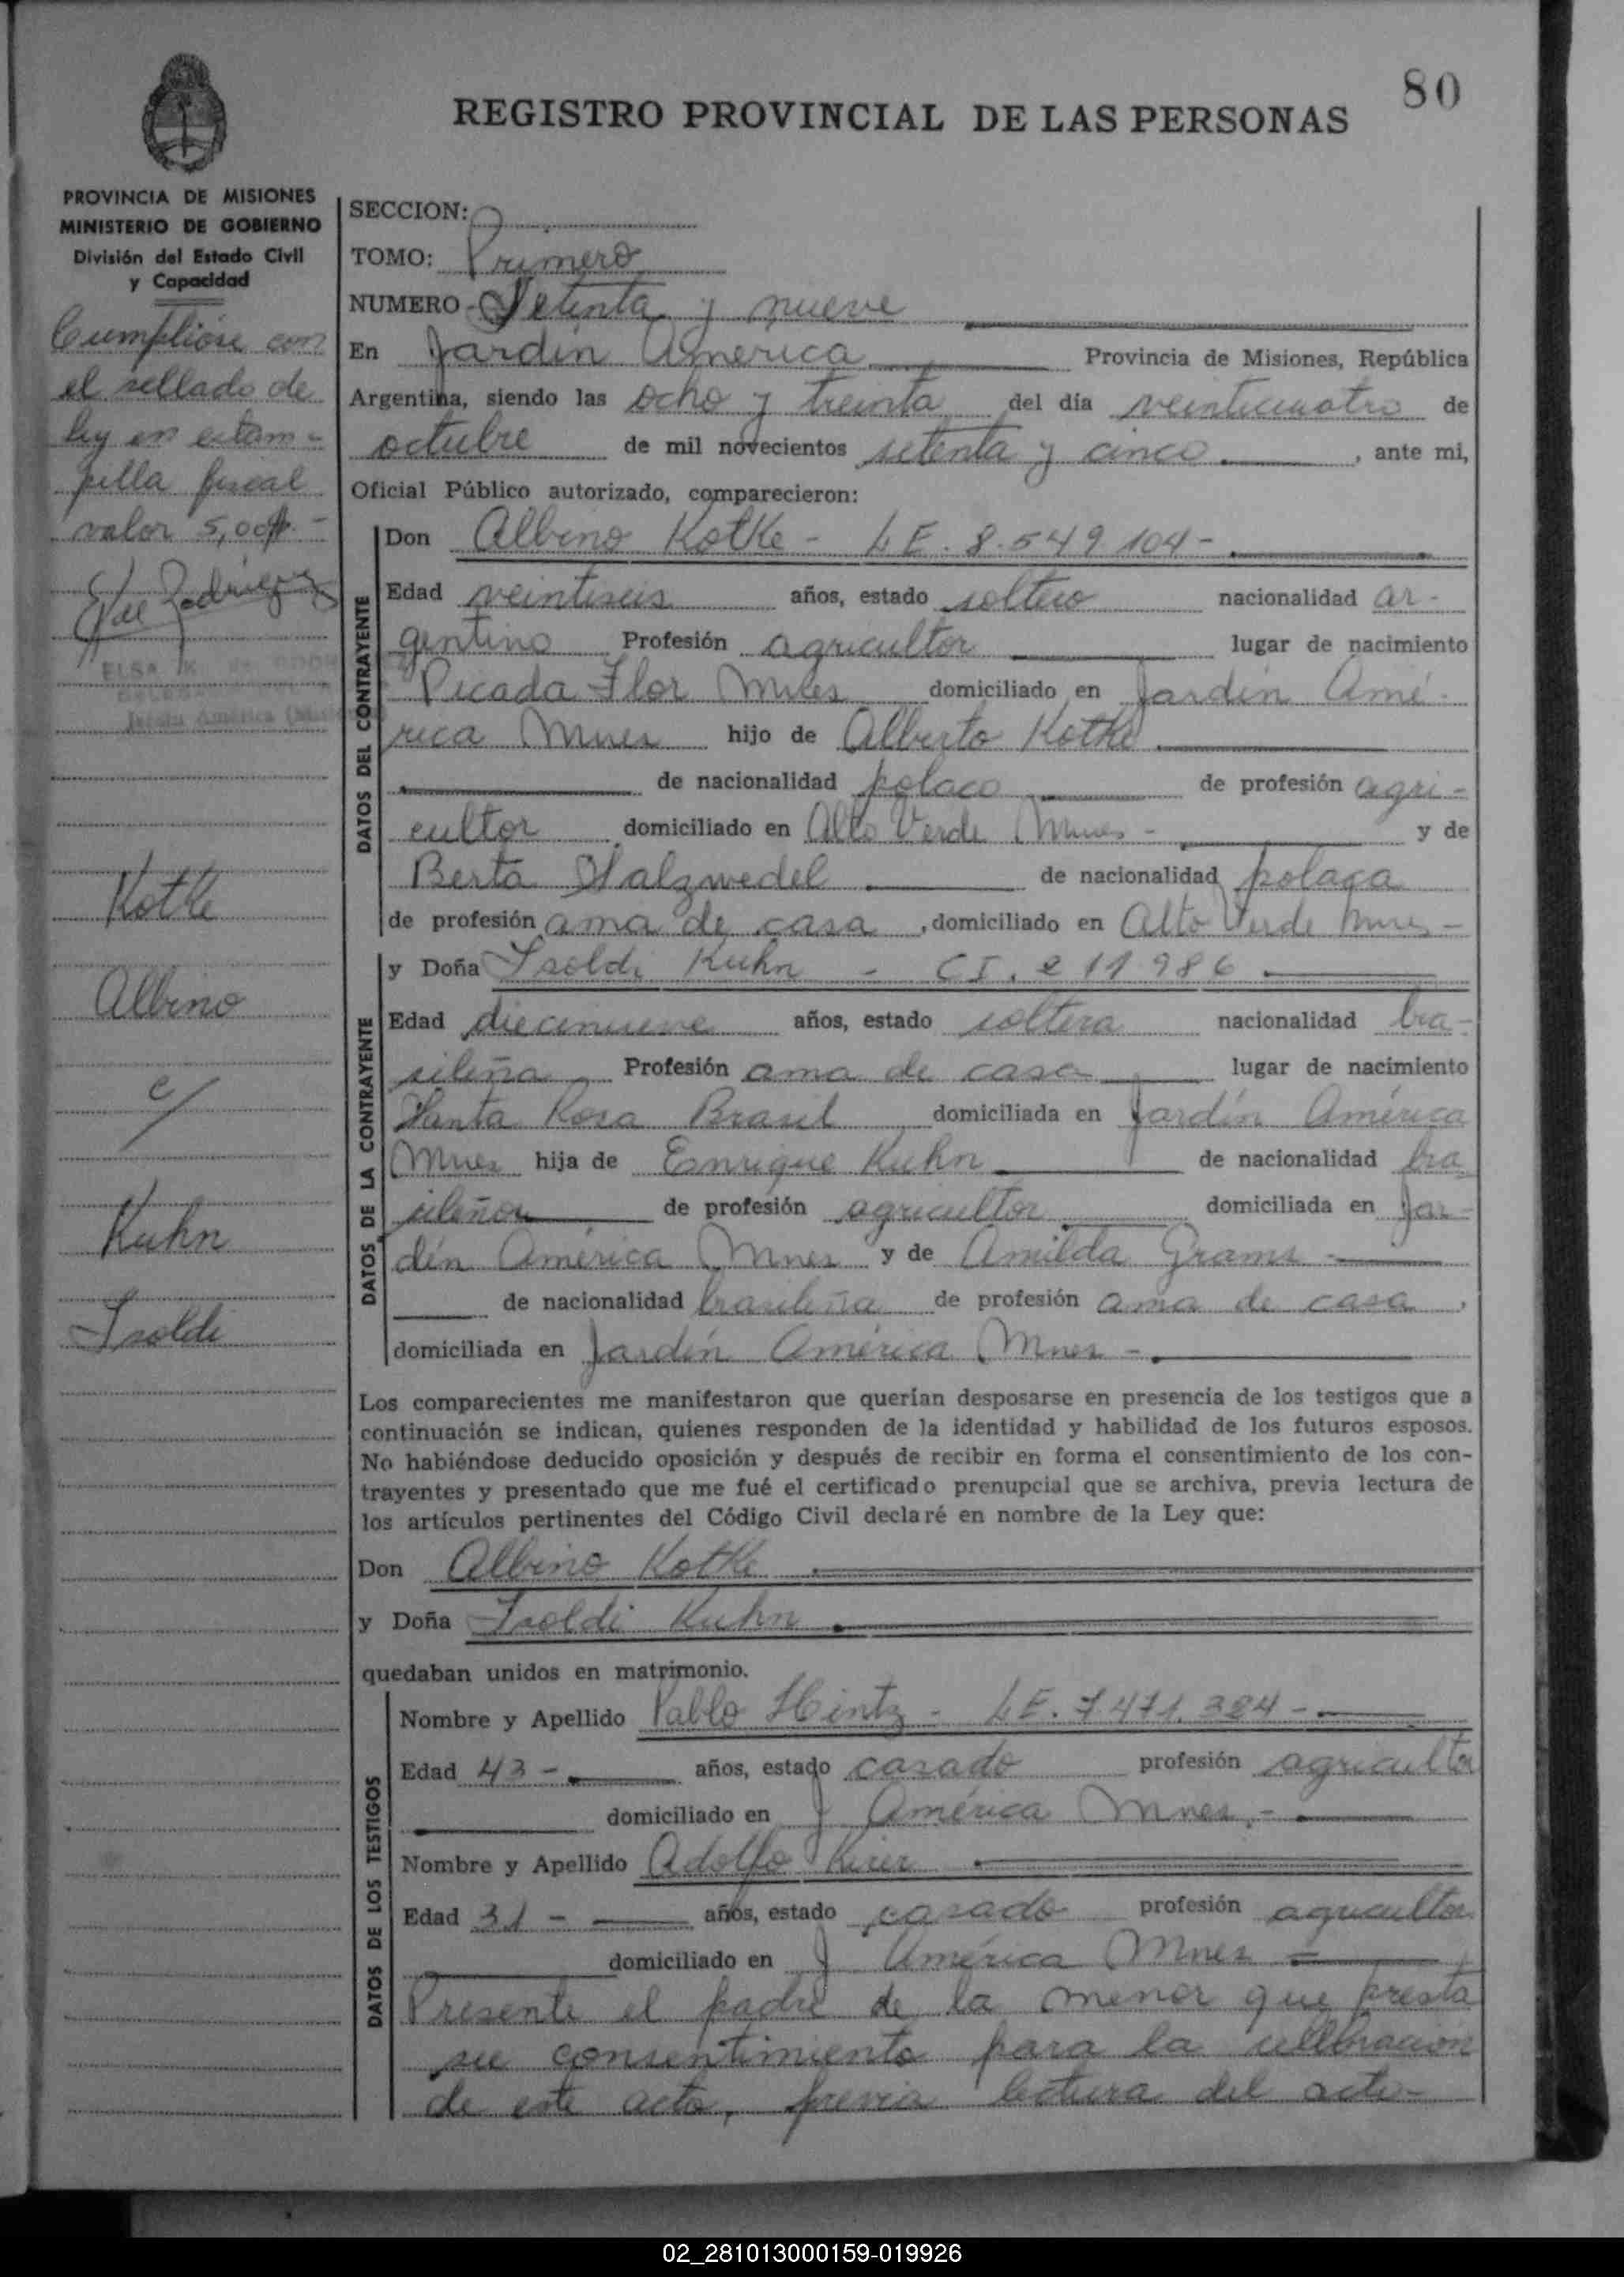 80
REGISTRO PROVINCIAL DE LAS PERSONAS
PROVINCIA DE MISIONES
MINISTERIO DE GOBIERNO
División del Estado Civil
y Capacidad
Cumplióse con
el sellado de
ley en estam-
pilla fiscal
valor 5,00
Kotke
Albino
c/
Kuhn
Isoldi
SECCION:
TOMO: Primero
NUMERO Setenta y nueve
En Jardín América Provincia de Misiones, República
Argentina, siendo las ocho y treinta del día veinticuatro de
octubre de mil novecientos setenta y cinco, ante mi,
Oficial Público autorizado, comparecieron:
DATOS DEL CONTRAYENTE
Don Albino Kotke - L E. 8.549 104 -
Edad veintiseis años, estado soltero nacionalidad ar-
gentino Profesión agricultor lugar de nacimiento
Picada Flor Mnes domiciliado en Jardín Amé-
rica Mnes hijo de Alberto Kotke
de nacionalidad polaco de profesión agri-
cultor domiciliado en Alto Verde Mnes - y de
Berta Salzwedel de nacionalidad polaca
de profesión ama de casa, domiciliado en Alto Verde Mnes -
DATOS DE LA CONTRAYENTE
y Doña Isoldi Kuhn - C I. 211 986
Edad diecinueve años, estado soltera nacionalidad bra-
sileña Profesión ama de casa lugar de nacimiento
Santa Rosa Brasil domiciliada en Jardín América
Mnes hija de Enrique Kuhn de nacionalidad bra
sileños de profesión agricultor domiciliada en Jar-
dín América Mnes y de Amilda Grams
de nacionalidad brasileña de profesión ama de casa,
domiciliada en Jardín América Mnes -
Los comparecientes me manifestaron que querían desposarse en presencia de los testigos que a
continuación se indican, quienes responden de la identidad y habilidad de los futuros esposos.
No habiéndose deducido oposición y después de recibir en forma el consentimiento de los con-
trayentes y presentado que me fué el certificado prenupcial que se archiva, previa lectura de
los artículos pertinentes del Código Civil declaré en nombre de la Ley que:
Don Albino Kotke
y Doña Isoldi Kuhn
quedaban unidos en matrimonio.
DATOS DE LOS TESTIGOS
Nombre y Apellido Pablo Hintz - L E. 7.471.384 -
Edad 43 - años, estado casado profesión agricultor
domiciliado en J América Mnes -
Nombre y Apellido Adolfo
Edad 31 - años, estado casado profesión agricultor
domiciliado en J América Mnes
Presente el padre de la menor que presta
su consentimiento para la celebración
de este acto, previa lectura del acto-
02_281013000159-019926